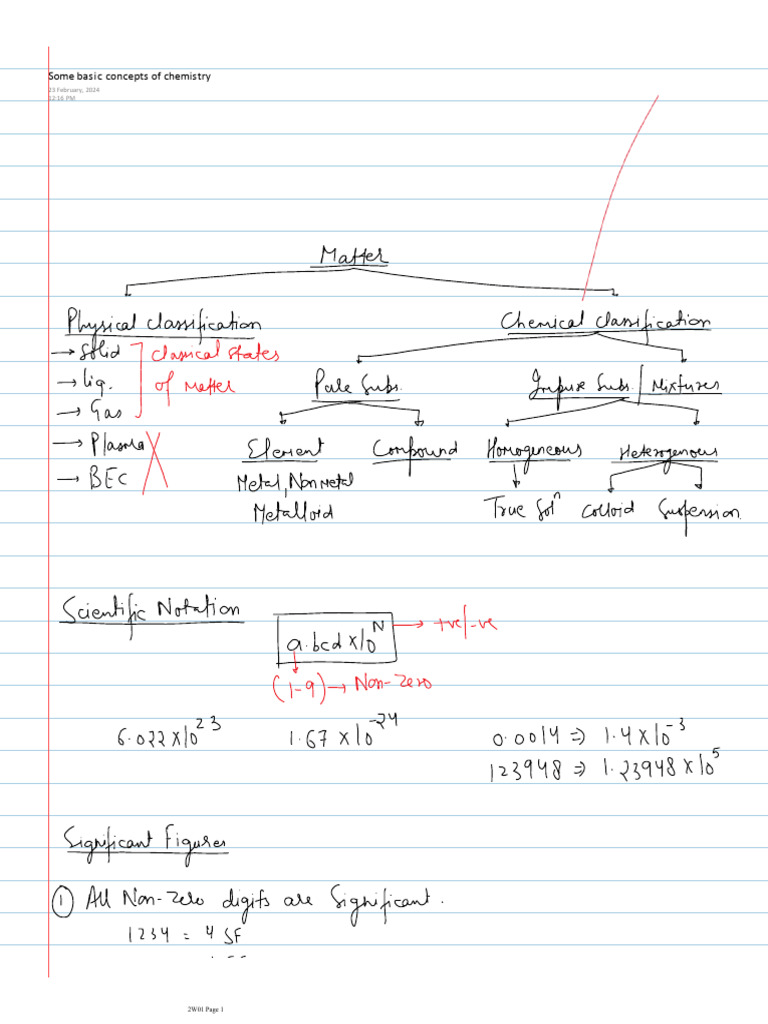 Some basic concepts of chemistry
23 February, 2024
12:16 PM
Matter
Physical classification
Chemical classification
→ Solid
→ liq.
→ Gas
classical states
of Matter
→ Plasma
→ BEC
Pure Subs.
Impure Subs. | Mixtures
Element
Compound
Homogeneous
Heterogenous
Metal, Non metal
Metalloid
True Solⁿ
Colloid
Suspension
Scientific Notation
a.bcd x10^N
→ +ve/-ve
(1-9) → Non-Zero
6.022 x10^23
1.67 x10^-24
0.0014 ⇒ 1.4 x10^-3
123948 ⇒ 1.23948 x10^5
Significant Figures
① All Non-Zero digits are Significant.
1234 = 4 SF
2W01 Page 1